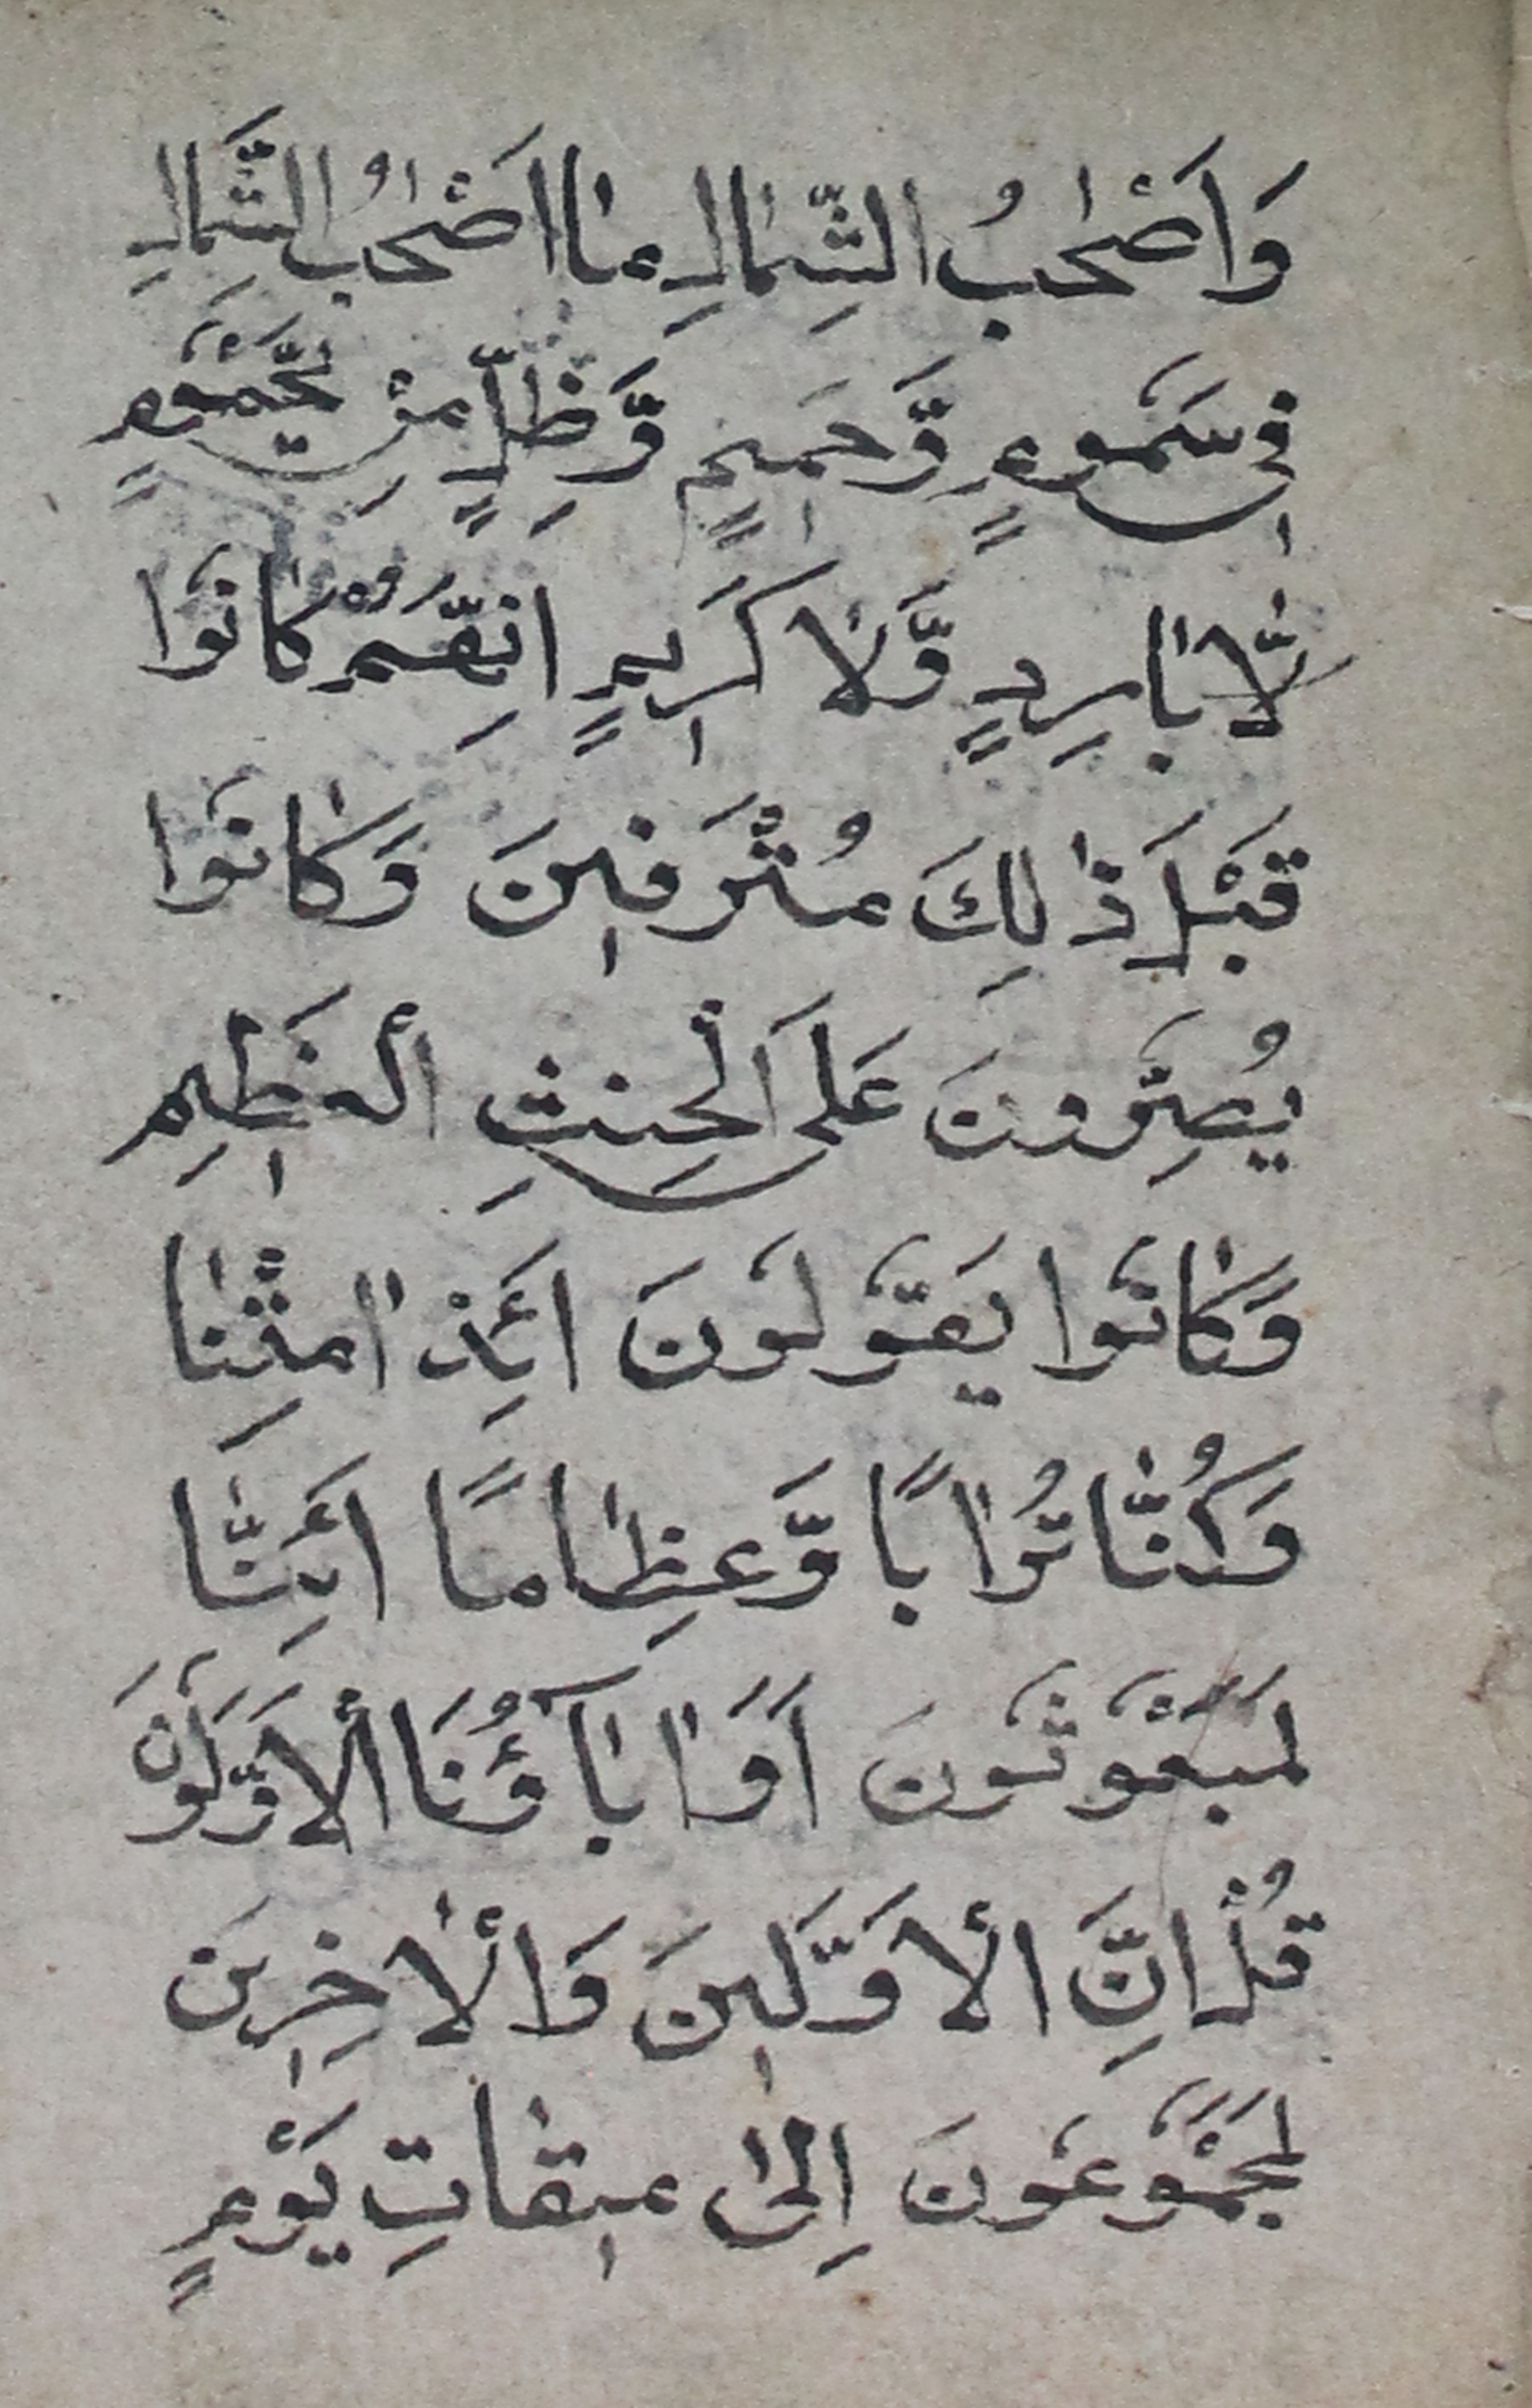 وَاَصْحٰبُ الشِّمَالِ مَا اَصْحٰبُ الشِّمَالِ
فِى سَمُومٍ وَّحَمِيمٍ وَّظِلٍّ مِنْ يَّحْمُومٍ
لَّا بَارِدٍ وَّلَا كَرِيمٍ اِنَّهُمْ كَانُوا
قَبْلَ ذٰلِكَ مُتْرَفِينَ وَكَانُوا
يُصِرُّونَ عَلَى الْحِنْثِ الْعَظِيمِ
وَكَانُوا يَقُولُونَ اَئِذَا مِتْنَا
وَكُنَّا تُرَابًا وَّعِظَامًا اَئِنَّا
لَمَبْعُوثُونَ اَوَ اٰبَآؤُنَا الْاَوَّلُونَ
قُلْ اِنَّ الْاَوَّلِينَ وَالْاٰخِرِينَ
لَمَجْمُوعُونَ اِلٰى مِيقَاتِ يَوْمٍ